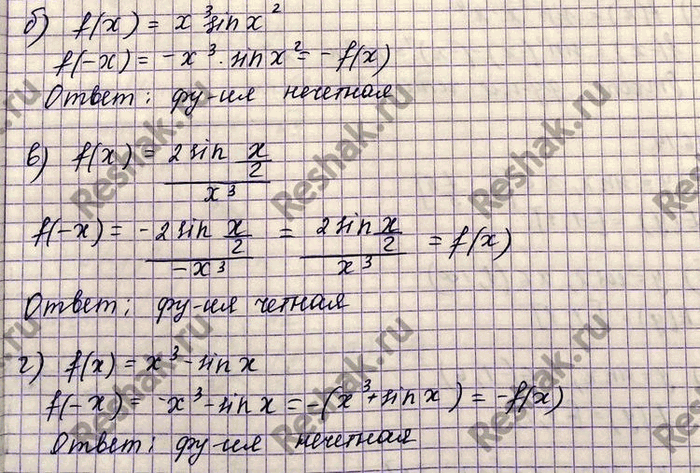 б) f(x) = x³ sin x²
f(-x) = -x³ · sin x² = -f(x)
Ответ: фу-ия нечетная
в) f(x) = 2 sin x/2 / x³
f(-x) = -2 sin x/2 / -x³ = 2 sin x/2 / x³ = f(x)
Ответ: фу-ия четная
г) f(x) = x³ - sin x
f(-x) = -x³ - sin x = -(x³ + sin x) = -f(x)
Ответ: фу-ия нечетная
Reshak.ru
Reshak.ru
Reshak.ru
Reshak.ru